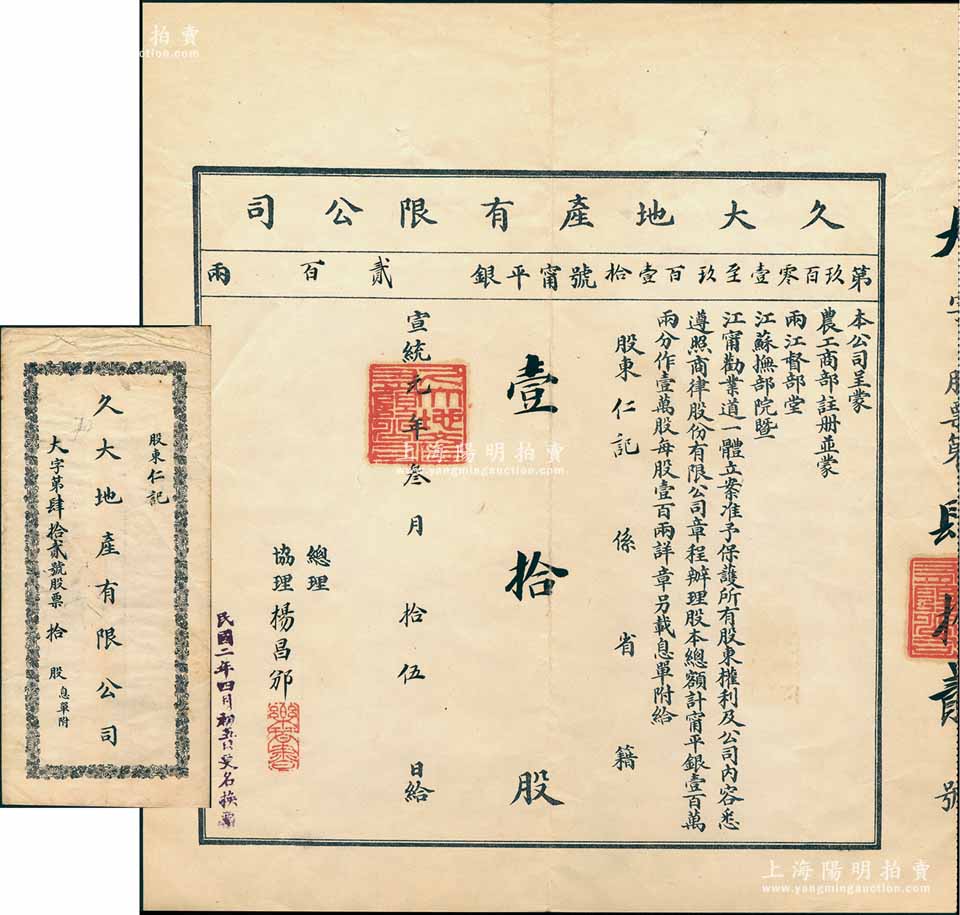 久大地產有限公司
第玖百零壹至玖百壹拾號甯平銀貳百兩
本公司呈蒙
農工商部註册並蒙
兩江督部堂
江蘇撫部院暨
江甯勸業道一體立案准予保護所有股東權利及公司內容悉
遵照商律股份有限公司章程辦理股本總額計甯平銀壹百萬
兩分作壹萬股每股壹百兩詳章另載息單附給
股東仁記 係 省 籍
壹拾股
宣統元年叁月拾伍日給
總理
協理 楊昌邠
民國二年四月初五日更名換票
字股票第肆拾貳號
股東仁記
大字第肆拾貳號股票拾股息單附
久大地產有限公司
上海陽明拍賣
www.yangmingauction.com
上海陽明拍賣
上海陽明拍賣
www.yangmingauction.com